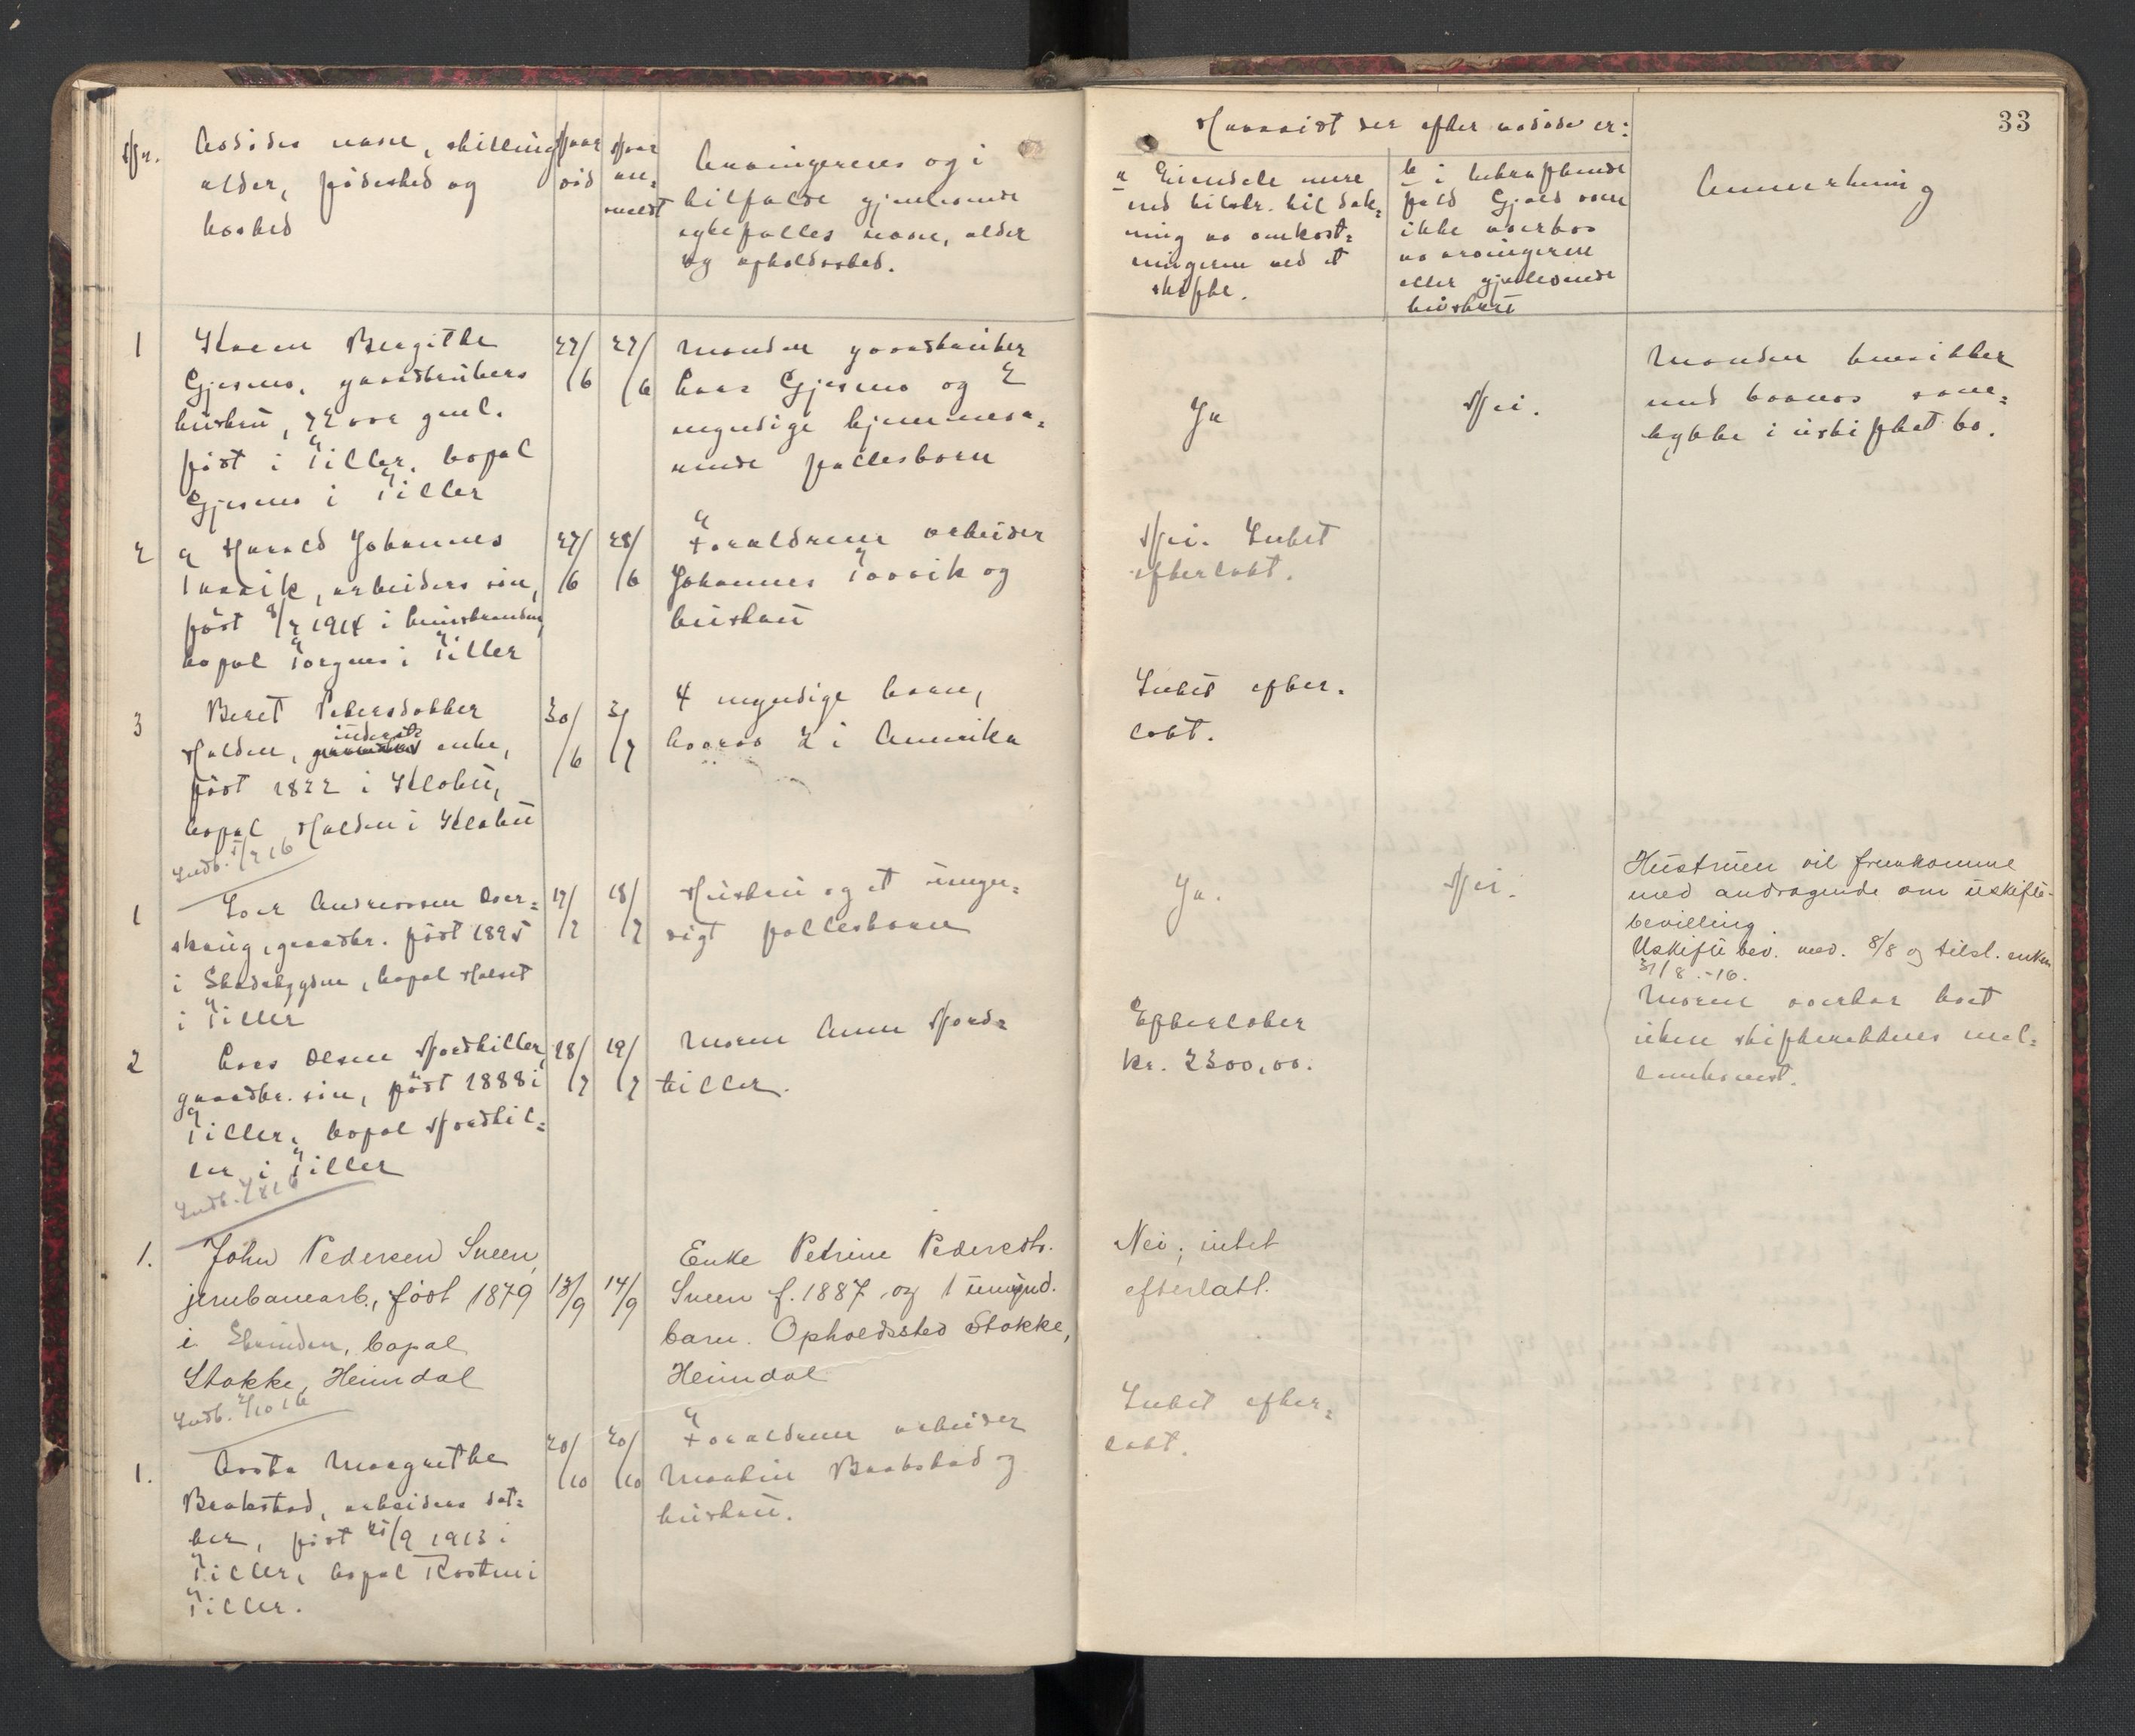 33
Nr.
Avdødes navn, stilling
alder, fødested og
bosted
Naar
død
Naar
an-
meldt
Arvingernes og i
tilfælde gjenlevende
egtefælles navn, alder
og opholdssted.
Hvorvidt der efter avdøde er:
a Eiendele mere
end tilstr. til dæk-
ning av omkost-
ningerne ved et
skifte.
b i bekræftende
fald Gjæld som
ikke overtas
av arvingerne
eller gjenlevende
hustru
Anmerkning
1
Karen Bergitte
Gjesmo, gaardbrukers
hustru, 72 aar gml.
født i Tiller, bopæl
Gjesmo i Tiller
27/6
27/6
Manden gaardbruker
Lars Gjesmo og 2
myndige hjemmevæ-
rende fællesbarn
Ja
Nei.
Manden besidder
med barnas sam-
tykke i uskiftet bo.
2
Harald Johannes
Tarvik, arbeiders søn,
født 8/7 1914 i Buvik
bopæl Torgmo i Tiller
27/6
28/6
Forældrene arbeider
Johannes Torvik og
hustru
Nei. Intet
efterlatt.
3
Beret Petersdatter
Halden, inderst enke,
født 1822 i Klæbu,
bopæl Halden i Klæbu
30/6
3/7
4 myndige barn,
hvorav 2 i Amerika
Intet efter-
latt.
Indb. 1/7 16
1
Iver Andreassen Aver-
skaug, gaardbr. født 1895
i Stadsbygden, bopæl Halset
i Tiller
17/7
18/7
Hustru og et umyn-
digt fællesbarn
Ja.
Nei.
Hustruen vil fremkomme
med andragende om uskifte-
bevilling.
Uskifte bev. med. 8/8 og tilst. enken
31/8.-16.
2
Lars Olsen Nordtiller,
gaardbr. søn, født 1888 i
Tiller, bopæl Nordtil-
ler i Tiller
18/7
19/7
Moren Anne Nord-
tiller.
Efterlater
kr. 2300,00.
Moren overtar boet
uten skifterettens mel-
lemkomst.
Indb. 1/8 16
1.
John Pedersen Sneen,
jernbanearb., født 1879
i Strinden, bopæl
Stokke, Heimdal
13/9
14/9
Enke Petrine Pedersdt.
Sneen f. 1887 og 1 umynd.
barn. Opholdssted Stokke,
Heimdal
Nei; intet
efterlatt.
Indb. 2/10 16
1.
Aasta Margrethe
Brakstad, arbeiders dat-
ter, født 25/9 1913 i
Tiller, bopæl Rosten i
Tiller.
20/10
20/10
Forældrene arbeider
Martin Brakstad og
hustru.
Intet efter-
latt.